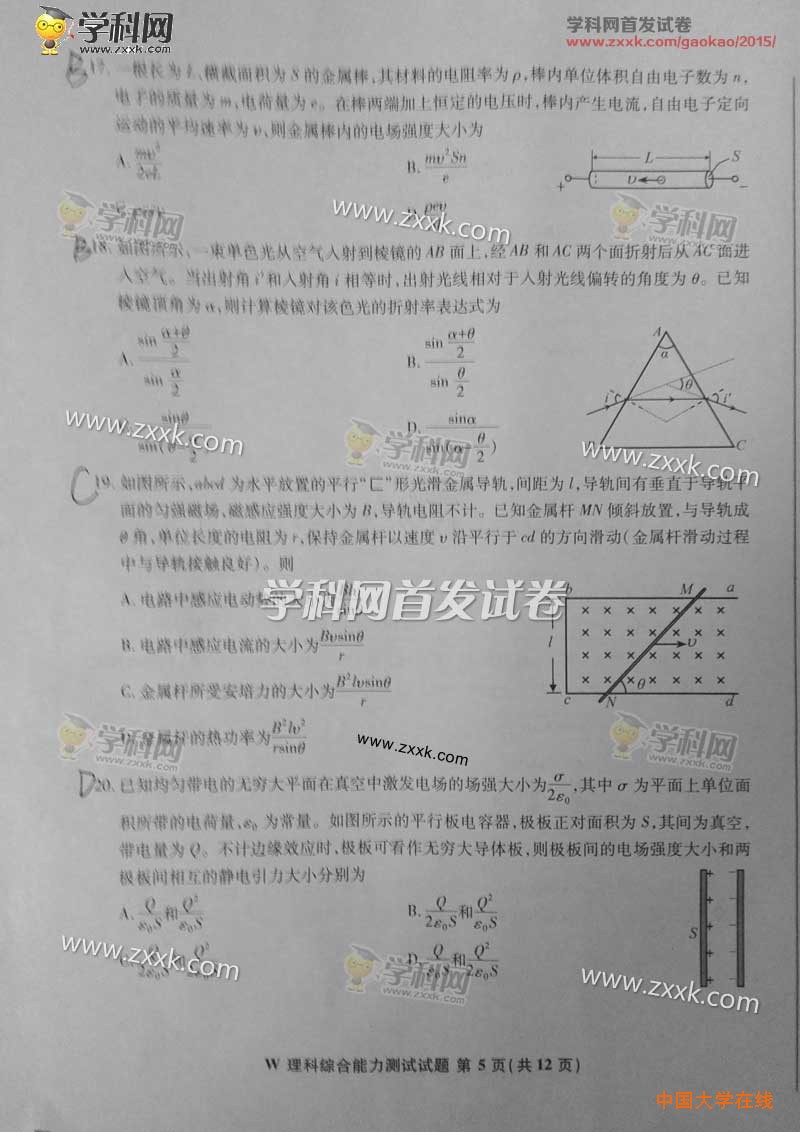 学科网 学科网首发试卷
www.zxxk.com http://www.zxxk.com/gaokao/2015/
B 17. 一根长为L、横截面积为S的金属棒,其材料的电阻率为ρ,棒内单位体积自由电子数为n,
电子的质量为m,电荷量为e。在棒两端加上恒定的电压时,棒内产生电流,自由电子定向
运动的平均速率为υ,则金属棒内的电场强度大小为
A. mυ²/2eL
B. mυ²Sn/e
L S
υ
+ −
学科网 www.zxxk.com 学科网
ρeυ
B 18. 如图所示,一束单色光从空气入射到棱镜的AB面上,经AB和AC两个面折射后从AC面进
入空气。当出射角i′和入射角i相等时,出射光线相对于入射光线偏转的角度为θ。已知
棱镜顶角为α,则计算棱镜对该色光的折射率表达式为
A. sin (α+θ)/2 / sin α/2
B. sin (α+θ)/2 / sin θ/2
A
α
θ
i i′
C
www.zxxk.com 学科网 www.zxxk.com
sinθ
D. sinα / sin(α−θ/2)
C 19. 如图所示,abcd为水平放置的平行“匚”形光滑金属导轨,间距为l,导轨间有垂直于导轨平
面的匀强磁场,磁感应强度大小为B,导轨电阻不计。已知金属杆MN倾斜放置,与导轨成
θ角,单位长度的电阻为r,保持金属杆以速度υ沿平行于cd的方向滑动(金属杆滑动过程
中与导轨接触良好)。则
学科网首发试卷
A. 电路中感应电动
B. 电路中感应电流的大小为Bυsinθ/r
C. 金属杆所受安培力的大小为B²lυsinθ/r
D. 金属杆的热功率为B²lυ²/rsinθ
b M a
l
υ
θ
c N d
学科网 www.zxxk.com 学科网
D 20. 已知均匀带电的无穷大平面在真空中激发电场的场强大小为σ/2ε₀,其中σ为平面上单位面
积所带的电荷量,ε₀为常量。如图所示的平行板电容器,极板正对面积为S,其间为真空,
带电量为Q。不计边缘效应时,极板可看作无穷大导体板,则极板间的电场强度大小和两
极板间相互的静电引力大小分别为
A. Q/ε₀S和Q²/ε₀S
B. Q/2ε₀S和Q²/ε₀S
C. Q/2ε₀S和Q²/2ε₀S
D. Q/ε₀S和Q²/2ε₀S
S
www.zxxk.com 学科网 www.zxxk.com
W 理科综合能力测试试题 第5页(共12页)
中国大学在线